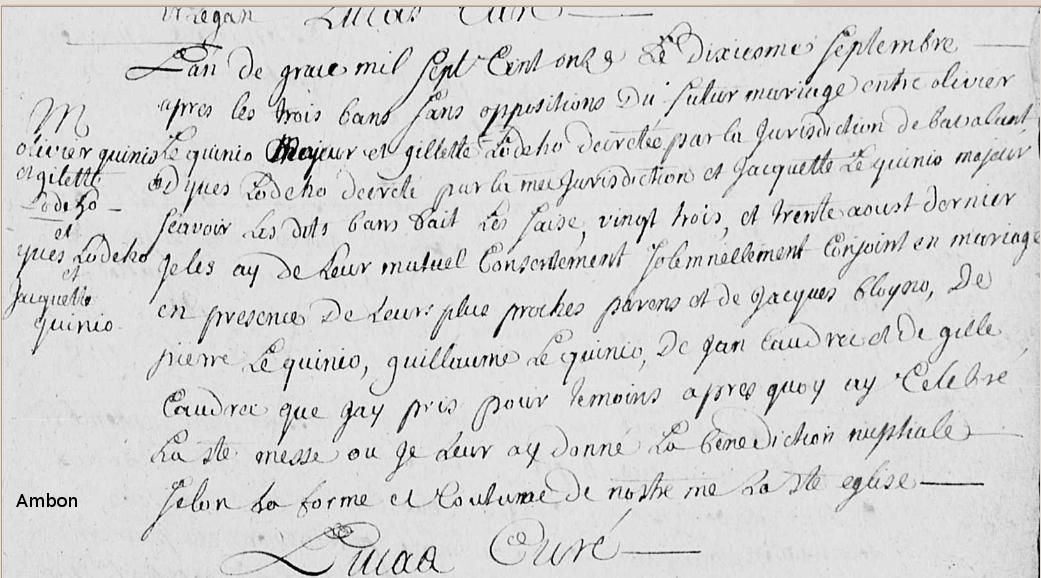 Lucas Curé
L'an de grace mil sept cent onze Le dixieme septembre
apres les trois bans sans oppositions du futur mariage entre olivier
Le quinio Majeur et gillette Lodeho decretée par la Jurisdiction de
et yves Lodeho decrete par la me Jurisdiction et Jacquette Le quinio majeur
scavoir Les dits bans fait Les saise, vingt trois, et trente aoust dernier
Je les ay de Leur mutuel Consentement solemnellement Conjoint en mariage
en presence De Leurs plus proches parens et de Jacques De
pierre Le quinio, guillaume Le quinio, De Jan Caudrec et De gille
Caudrec que Jay pris pour temoins apres quoy ay Celebre
La ste messe ou Je Leur ay donne La benediction nuptiale
selon La forme et Coutume de nostre me La ste eglise
Lucas Curé
M
olivier quinio
et gilette
Lodeho
et
yves Lodeho
et
Jacquette
quinio
Ambon